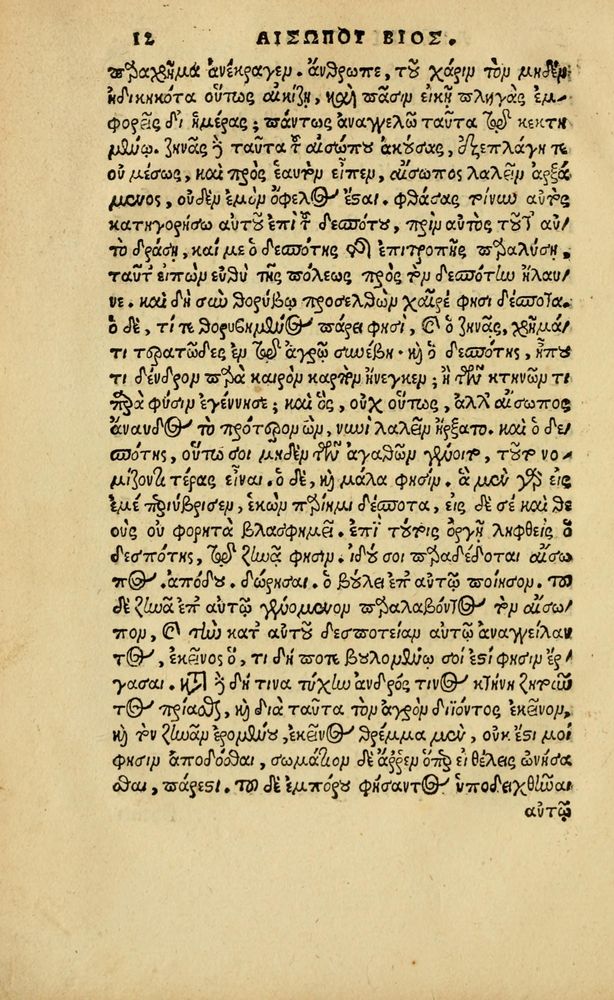 12 ΑΙΣΩΠΟΥ ΒΙΟΣ.
πραχθῆμα ἀνέκραγεν. ἄνθρωπε, τοῦ χάριν τὸν μηδὲν
ἠδικηκότα οὕτως αἰκίζῃ, καὶ πᾶσιν εἰκῆ πληγὰς ἐμ-
φορεῖς δι' ἡμέρας; πάντως ἀναγγελῶ ταῦτα τῷ κεκτη
μένῳ. ζηνᾶς δὲ ταῦτα τοῦ αἰσώπου ἀκούσας, ἐξεπλάγη τε
οὐ μέσως, καὶ πρὸς ἑαυτὸν εἶπεν, αἴσωπος λαλεῖν ἀρξά
μενος, οὐδὲν ἐμὸν ὄφελος ἔσται. φθάσας τοίνυν αὐτὸς
κατηγορήσω αὐτοῦ ἐπὶ τοῦ δεσπότου, πρὶν αὐτὸς τοῦτ' αὐ/
τὸ δράσῃ, καί με ὁ δεσπότης τῆς ἐπιτροπῆς παραλύσῃ.
ταῦτ' εἰπὼν εὐθὺ τῆς πόλεως πρὸς τὸν δεσπότην ἤλαυ/
νε. καὶ δὴ σὺν θορύβῳ προσελθὼν χαῖρέ φησι δέσποτα.
ὁ δέ, τί τεθορυβημένος πάρει φησί, καὶ ὁ ζηνᾶς, χρῆμά/
τι τερατῶδες ἐν τῷ ἀγρῷ συνέβη. καὶ ὁ δεσπότης, ἤπου
τι δένδρον παρὰ καιρὸν καρπὸν ἤνεγκεν; ἢ τῶν κτηνῶν τι
παρὰ φύσιν ἐγέννησε; καὶ ὅς, οὐχ οὕτως, ἀλλ' αἴσωπος
ἄναυδος τὸ πρότερον ὤν, νυνὶ λαλεῖν ἤρξατο. καὶ ὁ δε
σπότης, οὕτω σοι μηδὲν τῶν ἀγαθῶν γένοιτο, τοῦτο νο/
μίζοντι τέρας εἶναι. ὁ δέ, καὶ μάλα φησίν. ἃ μὲν γὰρ εἰς
ἐμὲ περιύβρισεν, ἑκὼν παρίημι δέσποτα, εἰς δὲ σὲ καὶ θε
οὺς οὐ φορητὰ βλασφημεῖ. ἐπὶ τούτοις ὀργῇ ληφθεὶς ὁ
δεσπότης, τῷ ζηνᾷ φησιν. ἰδού σοι παραδέδοται αἴσω
πος. ἀπόδου. δώρησαι. ὃ βούλει ἐπ' αὐτῷ ποίησον. τοῦ
δὲ ζηνᾶ ἐπ' αὐτῷ γενομένου παραλαβόντος τὸν αἴσω/
πον, καὶ τὴν κατ' αὐτοῦ δεσποτείαν αὐτῷ ἀναγγείλαν
τος, ἐκεῖνος ὅ, τι δή ποτε βουλομένῳ σοί ἐστί φησιν ἔρ/
γασαι. κατὰ δὲ δή τινα τύχην ἀνδρός τινος κτήνη ζητοῦν
τος πρίασθαι, καὶ διὰ ταῦτα τὸν ἀγρὸν διϊόντος ἐκεῖνον,
καὶ τὸν ζηνᾶν ἐρομένου, ἐκεῖνος θρέμμα μὲν, οὐκ ἔστι μοί
φησιν ἀποδόσθαι, σωμάτιον δὲ ἄρρεν ὅπερ εἰ θέλεις ὠνήσα
σθαι, πάρεστι. τοῦ δὲ ἐμπόρου φήσαντος ὑποδειχθῆναι
αὐτῷ